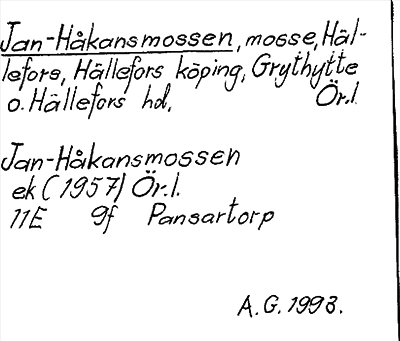 Jan-Håkansmossen, mosse, Häl-
lefors, Hällefors köping, Grythytte
o. Hällefors hd, Ör.l.
Jan-Håkansmossen
ek (1957) Ör.l.
11E 9f Pansartorp
A.G. 1993.